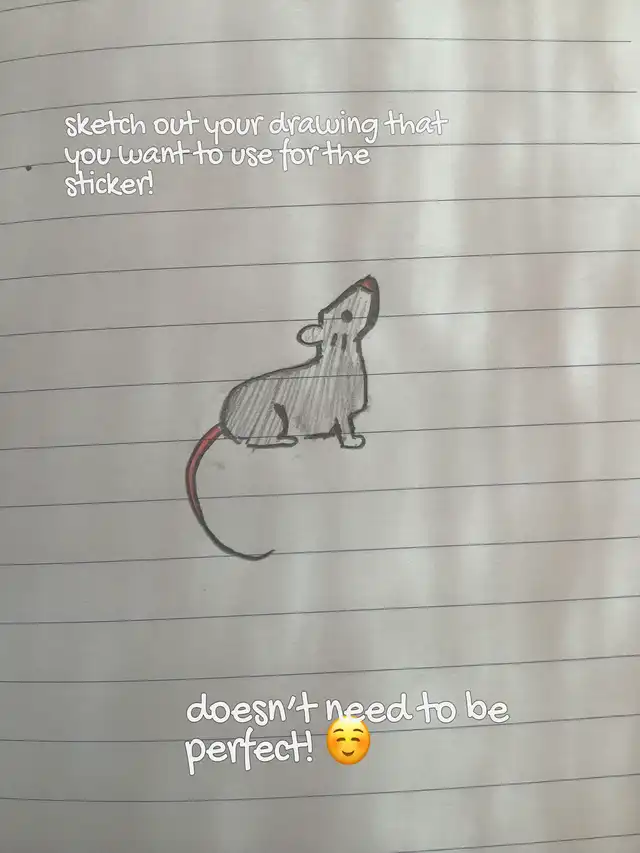 sketch out your drawing that
you want to use for the
sticker!
doesn't need to be
perfect! ☺️